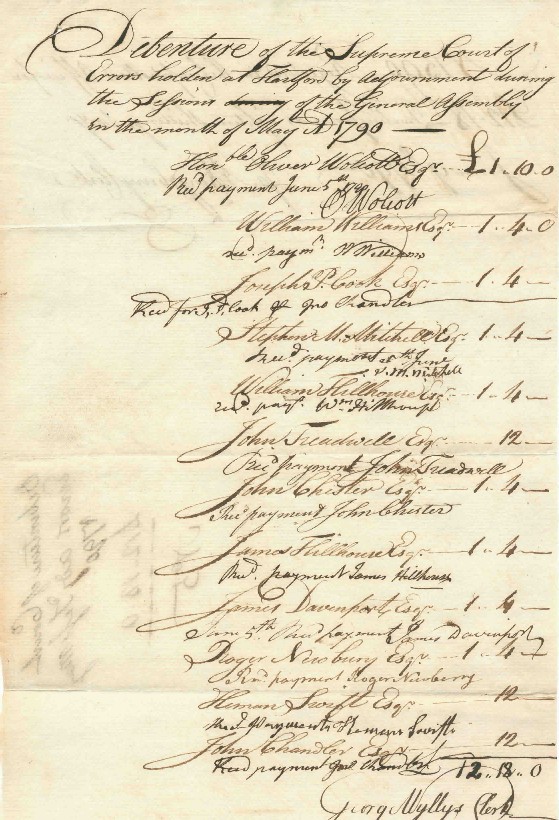 Debenture of the Supreme Court of
Errors holden at Hartford by Adjournment during
the Sessions of the General Assembly
in the month of May A 1790 —
Honble Oliver Wolcott Esqr £1..10.0
Recd payment June 5th 1790
O Wolcott
William Williams Esqr — 1..4..0
recd paymt W Williams
Joseph P. Cook Esqr — 1..4 —
Recd for J. P. Cook Jno Chandler
Stephen M. Mitchell Esqr 1..4 —
Recd payment 5th June
S. M. Mitchell
William Hillhouse Esqr 1..4 —
recd payt Wm Hillhouse
John Treadwell Esqr — 12 —
Recd payment John Treadwell
John Chester Esqr — 1..4 —
Recd payment John Chester
James Hillhouse Esqr — 1..4 —
Recd payment James Hillhouse
James Davenport Esqr — 1..4 —
June 5th Recd payment James Davenport
Roger Newbury Esqr — 1..4 —
Recd payment Roger Newberry
Heman Swift Esqr — 12 —
Recd payment Heman Swift
John Chandler Esqr — 12 —
Recd payment Jno Chandler 12..18..0
Georg Wyllys Clerk